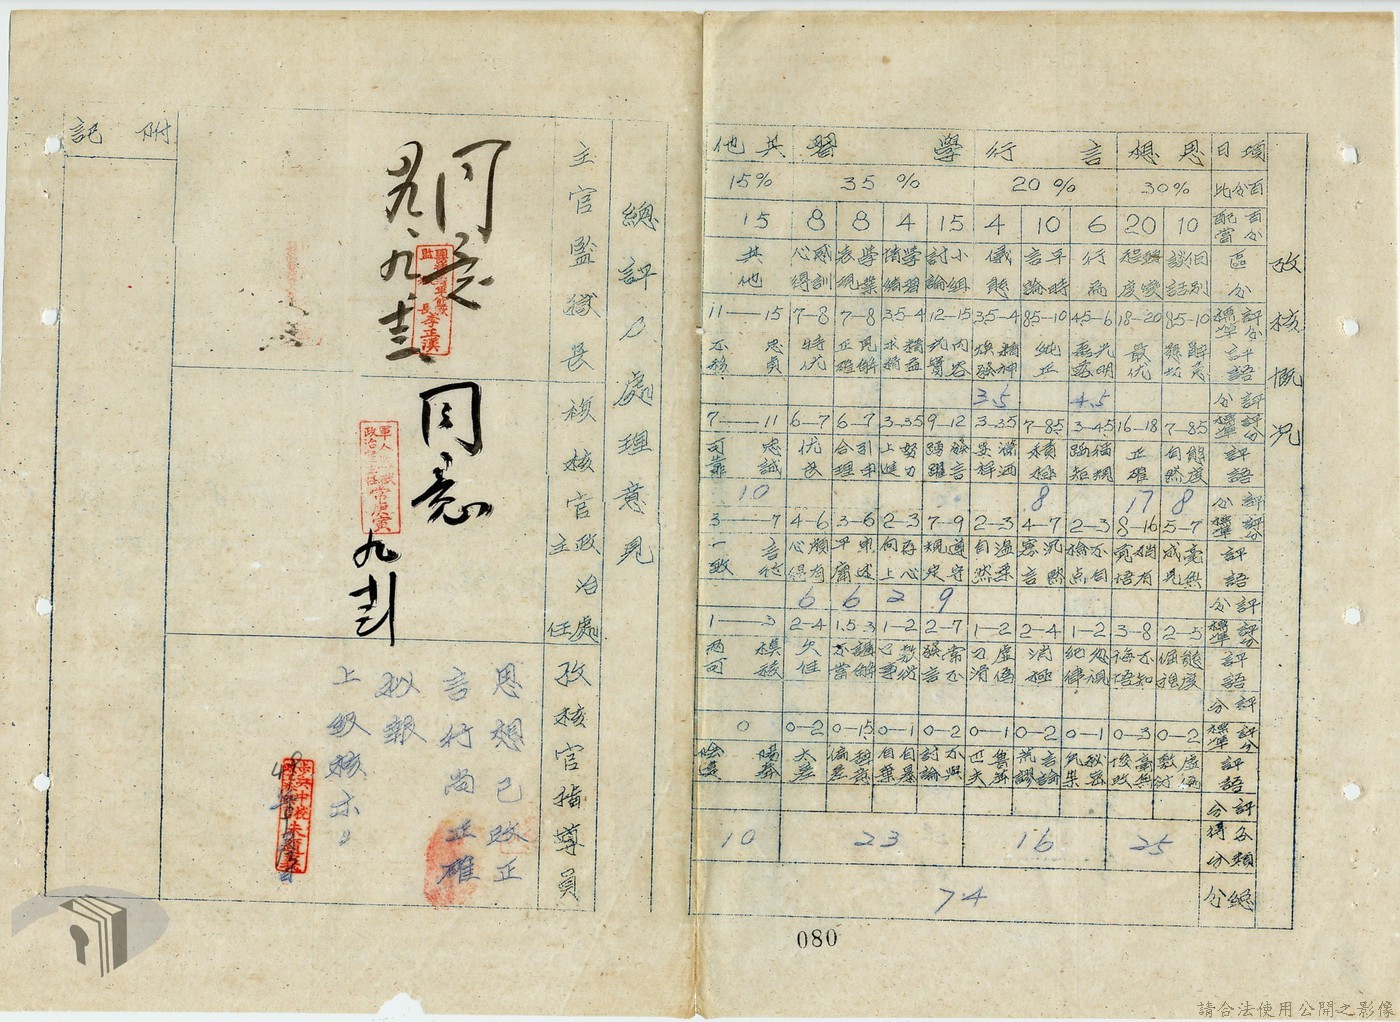 攷核概况
項目 思想 言行 學習 其他
百分比 30% 20% 35% 15%
百分配當 10 20 6 10 4 15 4 8 8 15
區分 個別談話 轉變程度 行為 平時言論 儀態 小組討論 學習情緒 學業表現 感訓心得 其他
評分標準 85-10 18-20 45-6 85-10 35-4 12-15 35-4 7-8 7-8 11—15
評語 最优 光明磊落 純正 精神煥發 內容充實 精益求精 見解正確 特优 忠貞不移
評分 4.5 3.5
評分標準 7-85 16-18 3-45 7-85 3-35 9-12 3-35 6-7 6-7 7—11
評語 態度自然 正確 積極 瀟洒 發言踴躍 努力上進 引申合理 优良 忠誠可靠
評分 8 17 8 10
評分標準 5-7 8-16 2-3 4-7 2-3 7-9 2-3 3-6 4-6 3—7
評語 毫無成見 稍有覺悟 不自檢点 沉默寡言 溫柔自然 遵守規定 存心向上 平庸 頗有心得 言行一致
評分 9 2 6 6
評分標準 2-5 3-8 1-2 2-4 1-2 2-7 1-2 1.5-3 2-4 1—3
評語 態度倔強 不知悔悟 消極 常不發言 敷衍了事 誤解不當 欠佳 模稜兩可
評分
評分標準 0-2 0-3 0-1 0-2 0-1 0-2 0-1 0-15 0-2 0
評語 虛偽敷衍 言論荒謬 魯莽 不與討論 自暴自棄 偏差 太差 陽奉陰違
評分
各類得分 25 16 23 10
總分 74
080
總評及處理意見
主官監獄長
複核官政治處主任
攷核官指導員
同意
九、九、十三
監獄長李正漢
同意
九、十
思想已改正
言行尚正確
擬報
上級核示。
附記
請合法使用公開之影像